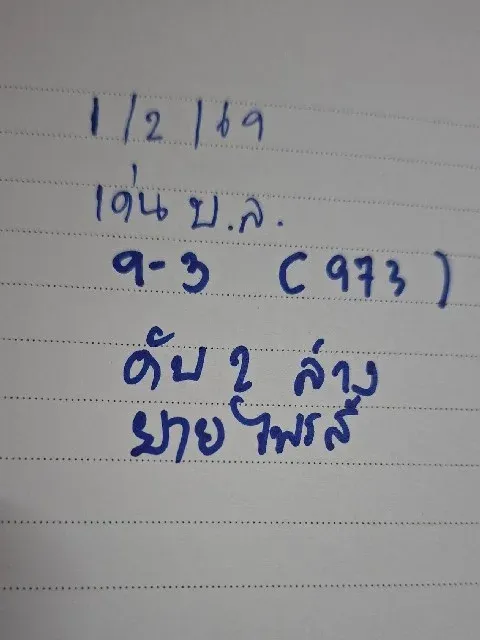 1/2/69
เด่น บ.ล.
9-3 (973)
ดับ 2 ล่าง
ยายไพรส์